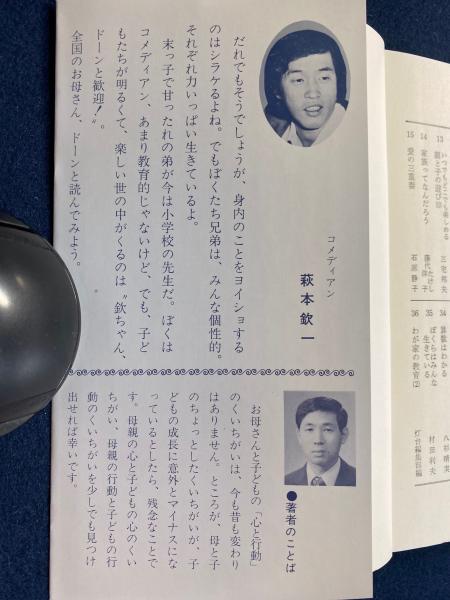 だれでもそうでしょうが、身内のことをヨイショする
のはシラケるよね。でもぼくたち兄弟は、みんな個性的。
それぞれ力いっぱい生きているよ。
末っ子で甘ったれの弟が今は小学校の先生だ。ぼくは
コメディアン、あまり教育的じゃないけど、でも、子ど
もたちが明るくて、楽しい世の中がくるのは〝欽ちゃん、
ドーンと歓迎!〟。
全国のお母さん、ドーンと読んでみよう。
コメディアン
萩本欽一
●著者のことば
お母さんと子どもの「心と行動」
のくいちがいは、今も昔も変わり
はありません。ところが、母と子
のちょっとしたくいちがいが、子
どもの成長に意外とマイナスにな
っているとしたら、残念なことで
す。母親の心と子どもの心のくい
ちがい、母親の行動と子どもの行
動のくいちがいを少しでも見つけ
出せれば幸いです。
13 いつでもどこでも楽しめる
親と子の遊び 三宅邦夫
14 家族ってなんだろう
15 愛の三重奏 石原静子
34 算数はわかる
35 ぼくらはみんな
生きている 村田利夫
36 わが家の教育(2) 灯台編集部編